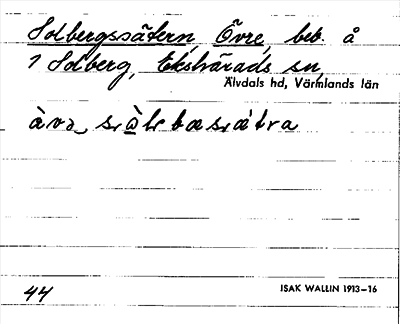 Solbergssätern, Övre, beb. å
1 Solberg, Ekshärads sn,
Älvdals hd, Värmlands län
44
ISAK WALLIN 1913–16